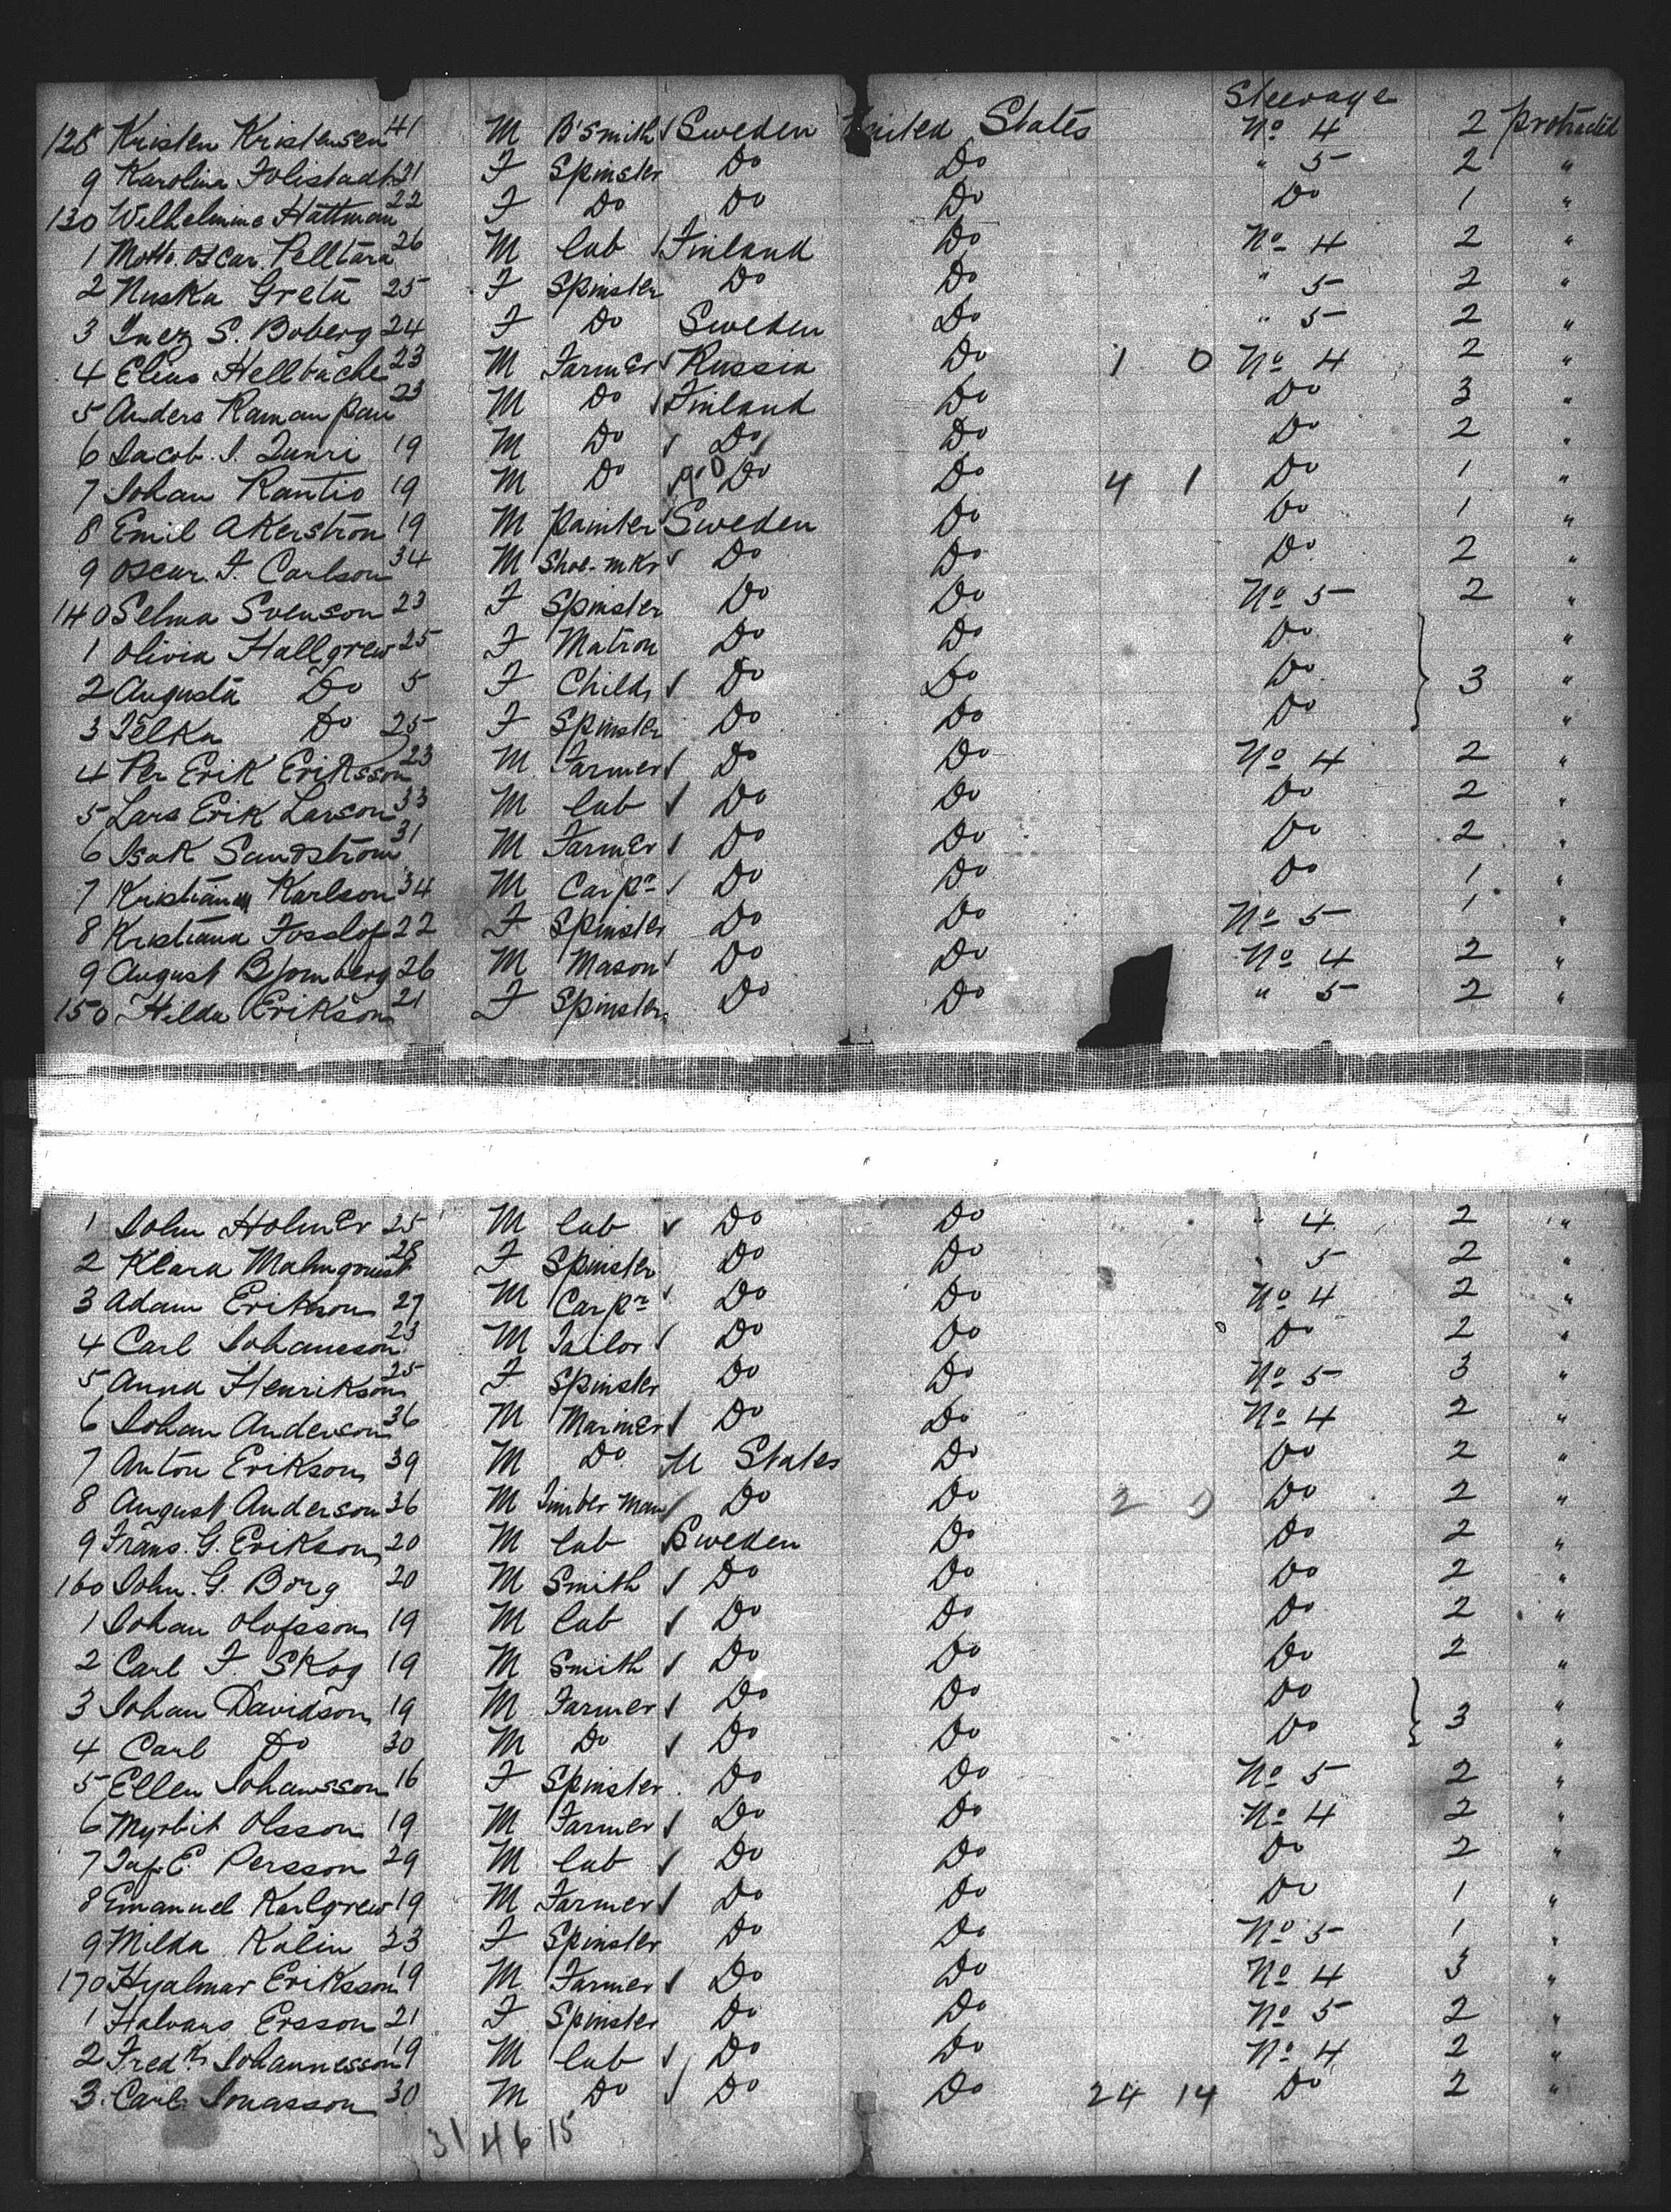 Steerage
128 Kristen Kristensen 41 M B'Smith Sweden United States No 4 2 protracted
9 Karolina Folistadt 21 F Spinster Do Do " 5 2 "
130 Wilhelmina Hattman 22 F Do Do Do Do 1 "
1 Matts. Oscar. Pelltara 26 M lab Finland Do No 4 2 "
2 Nuska Greta 25 F Spinster Do Do " 5 2 "
3 Inez S. Boberg 24 F Do Sweden Do " 5 2 "
4 Elias Hellbache 23 M Farmer Russia Do 1 0 No 4 2 "
5 Anders Ramanpau 23 M Do Finland Do Do 3 "
6 Jacob. J. 19 M Do Do Do Do 2 "
7 Johan Rantio 19 M Do Do Do 4 1 Do 1 "
8 Emil Akerstrom 19 M Painter Sweden Do Do 1 "
9 Oscar. F. Carlson 34 M Shoe-mkr Do Do Do 2 "
140 Selma Svenson 23 F Spinster Do Do No 5 2 "
1 Olivia Hallgrew 25 F Matron Do Do Do "
2 Augusta Do 5 F Child Do Do Do 3 "
3 Telka Do 25 F Spinster Do Do Do "
4 Per Erik Eriksson 23 M Farmer Do Do No 4 2 "
5 Lars Erik Larson 33 M lab Do Do Do 2 "
6 Isak Sandstrom 31 M Farmer Do Do Do 2 "
7 Kristian Karlson 34 M Carpr Do Do Do 1 "
8 Kristiana Fosslof 22 F Spinster Do Do No 5 1 "
9 August Bjornberg 26 M Mason Do Do No 4 2 "
150 Hilda Erikson 21 F Spinster Do Do " 5 2 "
1 John Holmer 25 M lab Do Do " 4 2 "
2 Klara Malmquist 28 F Spinster Do Do " 5 2 "
3 Adam Erikson 27 M Carpr Do Do No 4 2 "
4 Carl Johanson 23 M Tailor Do Do Do 2 "
5 Anna Henrikson 25 F Spinster Do Do No 5 3 "
6 Johan Anderson 36 M Mariner Do Do No 4 2 "
7 Anton Erikson 39 M Do U States Do Do 2 "
8 August Anderson 36 M Timber Man Do Do 2 0 Do 2 "
9 Frans. G. Erikson 20 M lab Sweden Do Do 2 "
160 John. G. Borg 20 M Smith Do Do Do 2 "
1 Johan Olofsson 19 M lab Do Do Do 2 "
2 Carl F. Skog 19 M Smith Do Do Do 2 "
3 Johan Davidson 19 M Farmer Do Do Do 3 "
4 Carl Do 30 M Do Do Do Do "
5 Ellen Johansson 16 F Spinster Do Do No 5 2 "
6 Myrbit Olsson 19 M Farmer Do Do No 4 2 "
7 E. Persson 29 M lab Do Do Do 2 "
8 Emanuel Karlgrew 19 M Farmer Do Do Do 1 "
9 Milda Kalin 23 F Spinster Do Do No 5 1 "
170 Hyalmar Eriksson 19 M Farmer Do Do No 4 3 "
1 Halvars Ersson 21 F Spinster Do Do No 5 2 "
2 Fredk Johannesson 19 M lab Do Do No 4 2 "
3 Carl Jonasson 30 M Do Do Do 24 14 Do 2 "
31 46 15